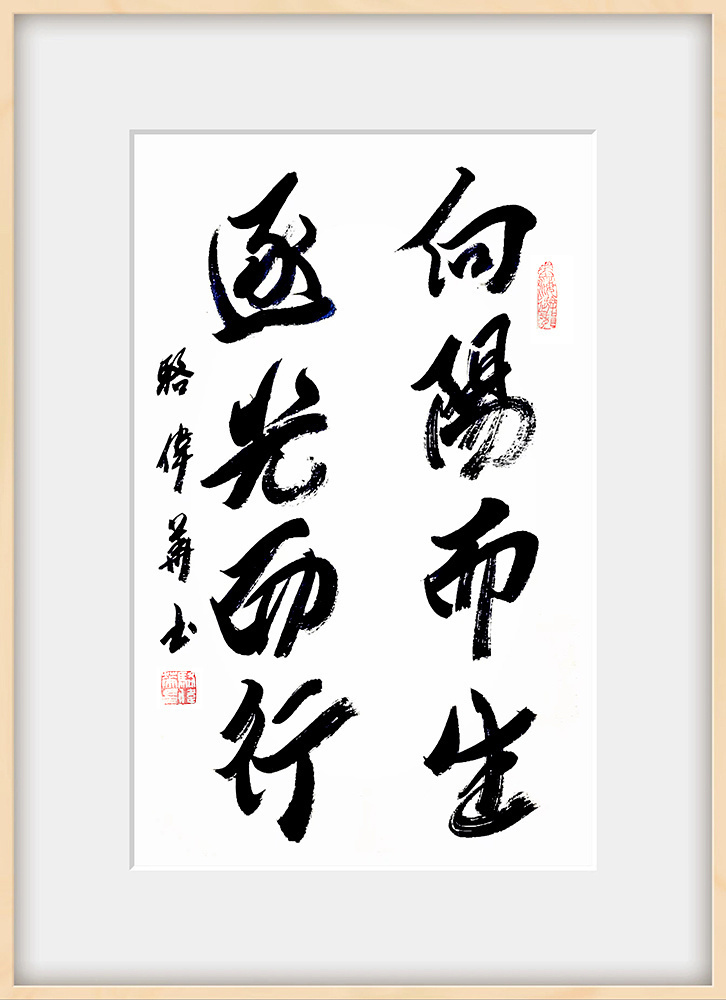 向陽而生
逐光而行
駱偉華书